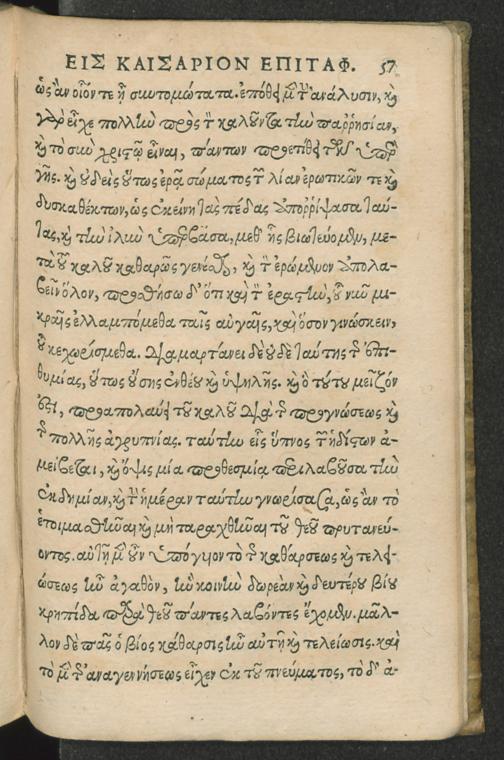 ΕΙΣ ΚΑΙΣΑΡΙΟΝ ΕΠΙΤΑΦ. 57
ὡς ἂν οἷόν τε ᾖ συντομώτατα. ἐπόθει μὲν τὴν ἀνάλυσιν, καὶ
γὰρ εἶχε πολλὴν πρὸς τὸν καλοῦντα τὴν παῤῥησίαν,
καὶ τὸ σὺν χριστῷ εἶναι, πάντων προετίθει τῶν ὑπὲρ
γῆς. καὶ οὐδεὶς οὕτως ἐρᾷ σώματος τῶν λίαν ἐρωτικῶν τε καὶ
δυσκαθέκτων, ὡς ἐκείνη τὰς πέδας ἀποῤῥίψασα ταύ-
τας, καὶ τὴν ἰλὺν ὑπερβᾶσα, μεθ' ἧς βιωτεύομεν, με-
τὰ τοῦ καλοῦ καθαρῶς γενέσθαι, καὶ τὸν ἐρώμενον ἀπολα-
βεῖν ὅλον, προσθήσω δ' ὅτι καὶ τὸν ἐραστὴν, οὗ νῦν μι-
κραῖς ἐλλαμπόμεθα ταῖς αὐγαῖς, καὶ ὅσον γινώσκειν,
οὗ κεχωρίσμεθα. διαμαρτάνει δὲ οὐδὲ ταύτης τῆς ἐπι-
θυμίας, οὕτως οὔσης ἐνθέου καὶ ὑψηλῆς. καὶ ὃ τούτου μεῖζόν
ἐστι, προαπολαύει τοῦ καλοῦ διὰ τῆς προγνώσεως καὶ
τῆς πολλῆς ἀγρυπνίας. ταύτην εἷς ὕπνος τῶν ἡδίστων ἀ-
μείβεται, καὶ ὄψις μία προθεσμία περιλαβοῦσα τὴν
ἐκδημίαν, καὶ τὴν ἡμέραν ταύτην γνωρίσασα, ὡς ἂν τὸ
ἑτοιμασθῆναι καὶ μὴ ταραχθῆναι τοῦ θεοῦ πρυτανεύ-
οντος. αὐτῇ μὲν οὖν ὑπόγυιον τὸ τῆς καθάρσεως καὶ τελει-
ώσεως ἦν ἀγαθὸν, ἣν κοινὴν δωρεὰν καὶ δευτέρου βίου
κρηπίδα παρὰ θεοῦ πάντες λαβόντες ἔχομεν. μᾶλ-
λον δὲ πᾶς ὁ βίος κάθαρσις ἦν αὐτῇ καὶ τελείωσις. καὶ
τὸ μὲν τῆς ἀναγεννήσεως εἶχεν ἐκ τοῦ πνεύματος, τὸ δ' ἀ-